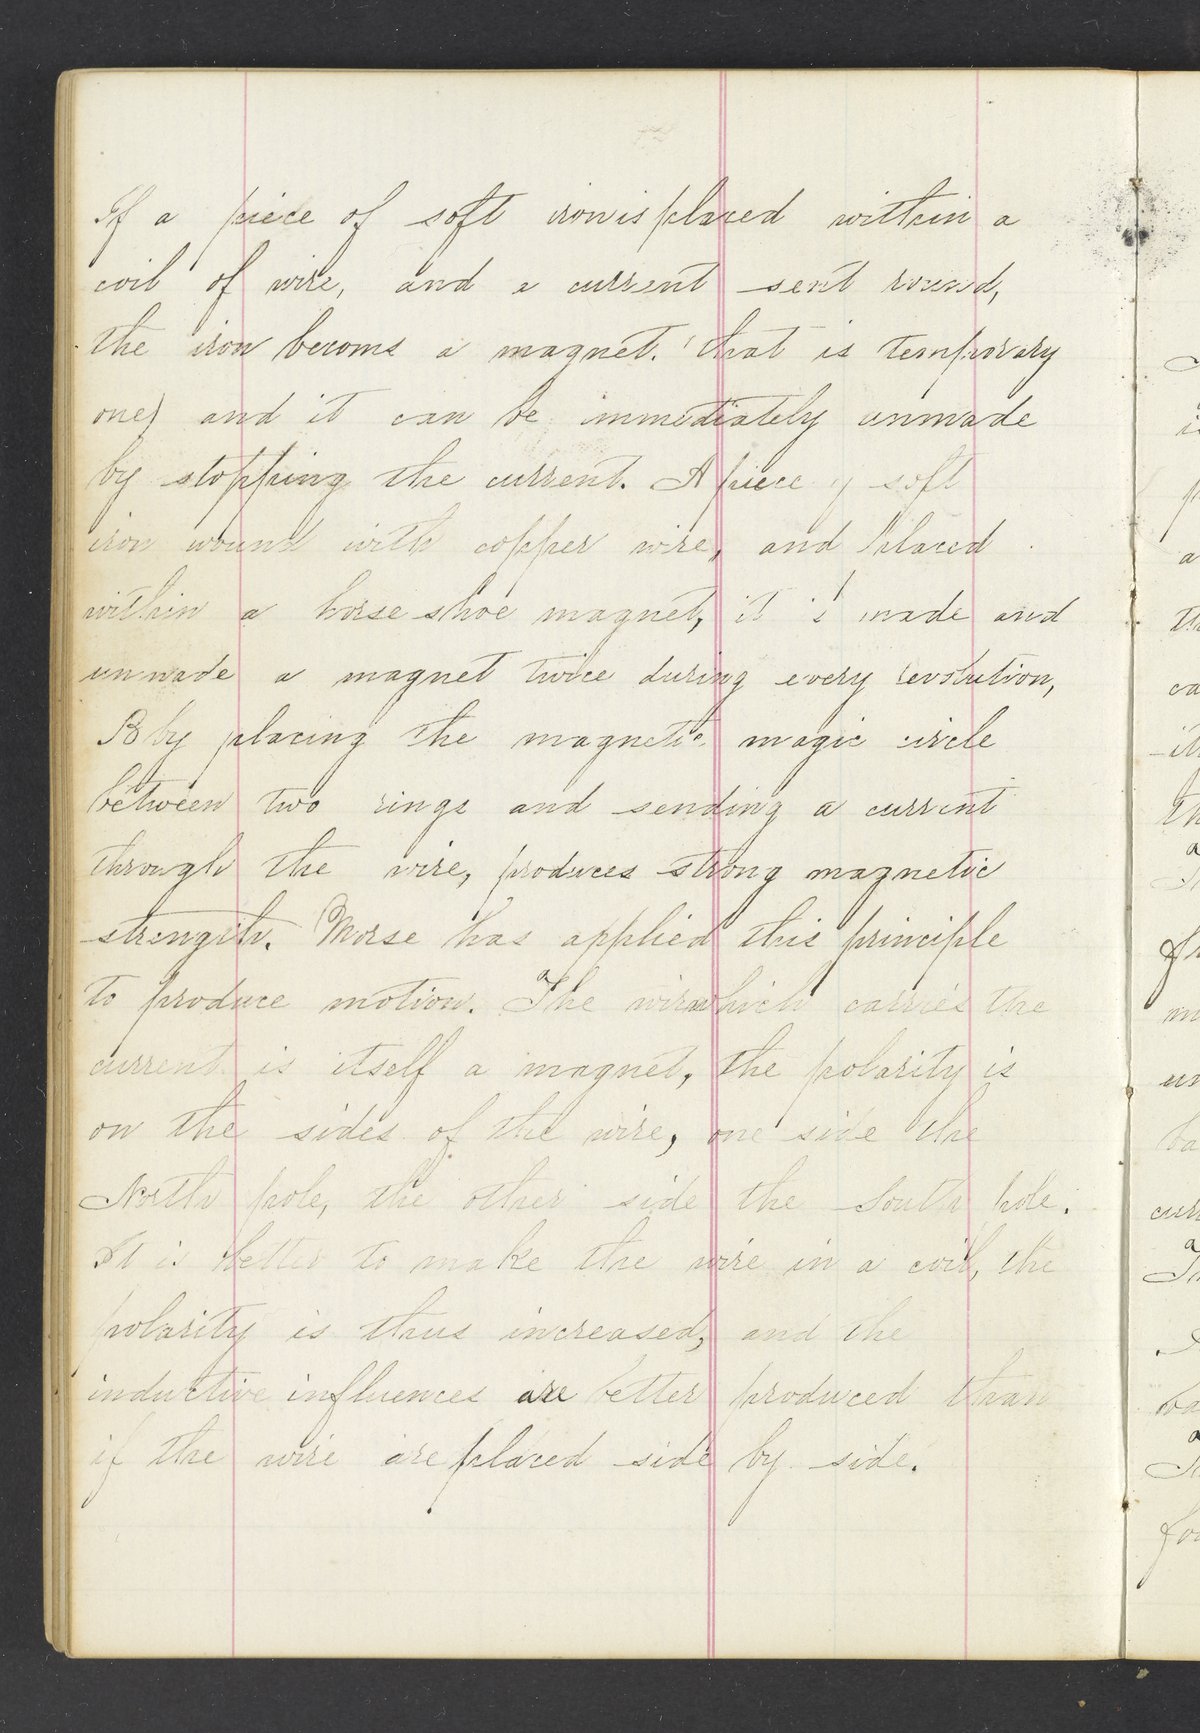 If a piece of soft iron is placed within a
coil of wire, and a current sent round,
the iron becoms a magnet. (that is temporary
one) and it can be immediately unmade
by stopping the current. A piece of soft
iron wound with copper wire, and placed
within a horse shoe magnet, it is made and
unmade a magnet twice during every revolution,
By placing the magnetic magic circle
between two rings and sending a current
through the wire, produces strong magnetic
strength. Morse has applied this principle
to produce motion. The wire which carries the
current is itself a magnet, the polarity is
on the sides of the wire, one side the
North pole, the other side the South pole.
It is better to make the wire in a coil, the
polarity is thus increased, and the
inductive influences are better produced than
if the wire are placed side by side.